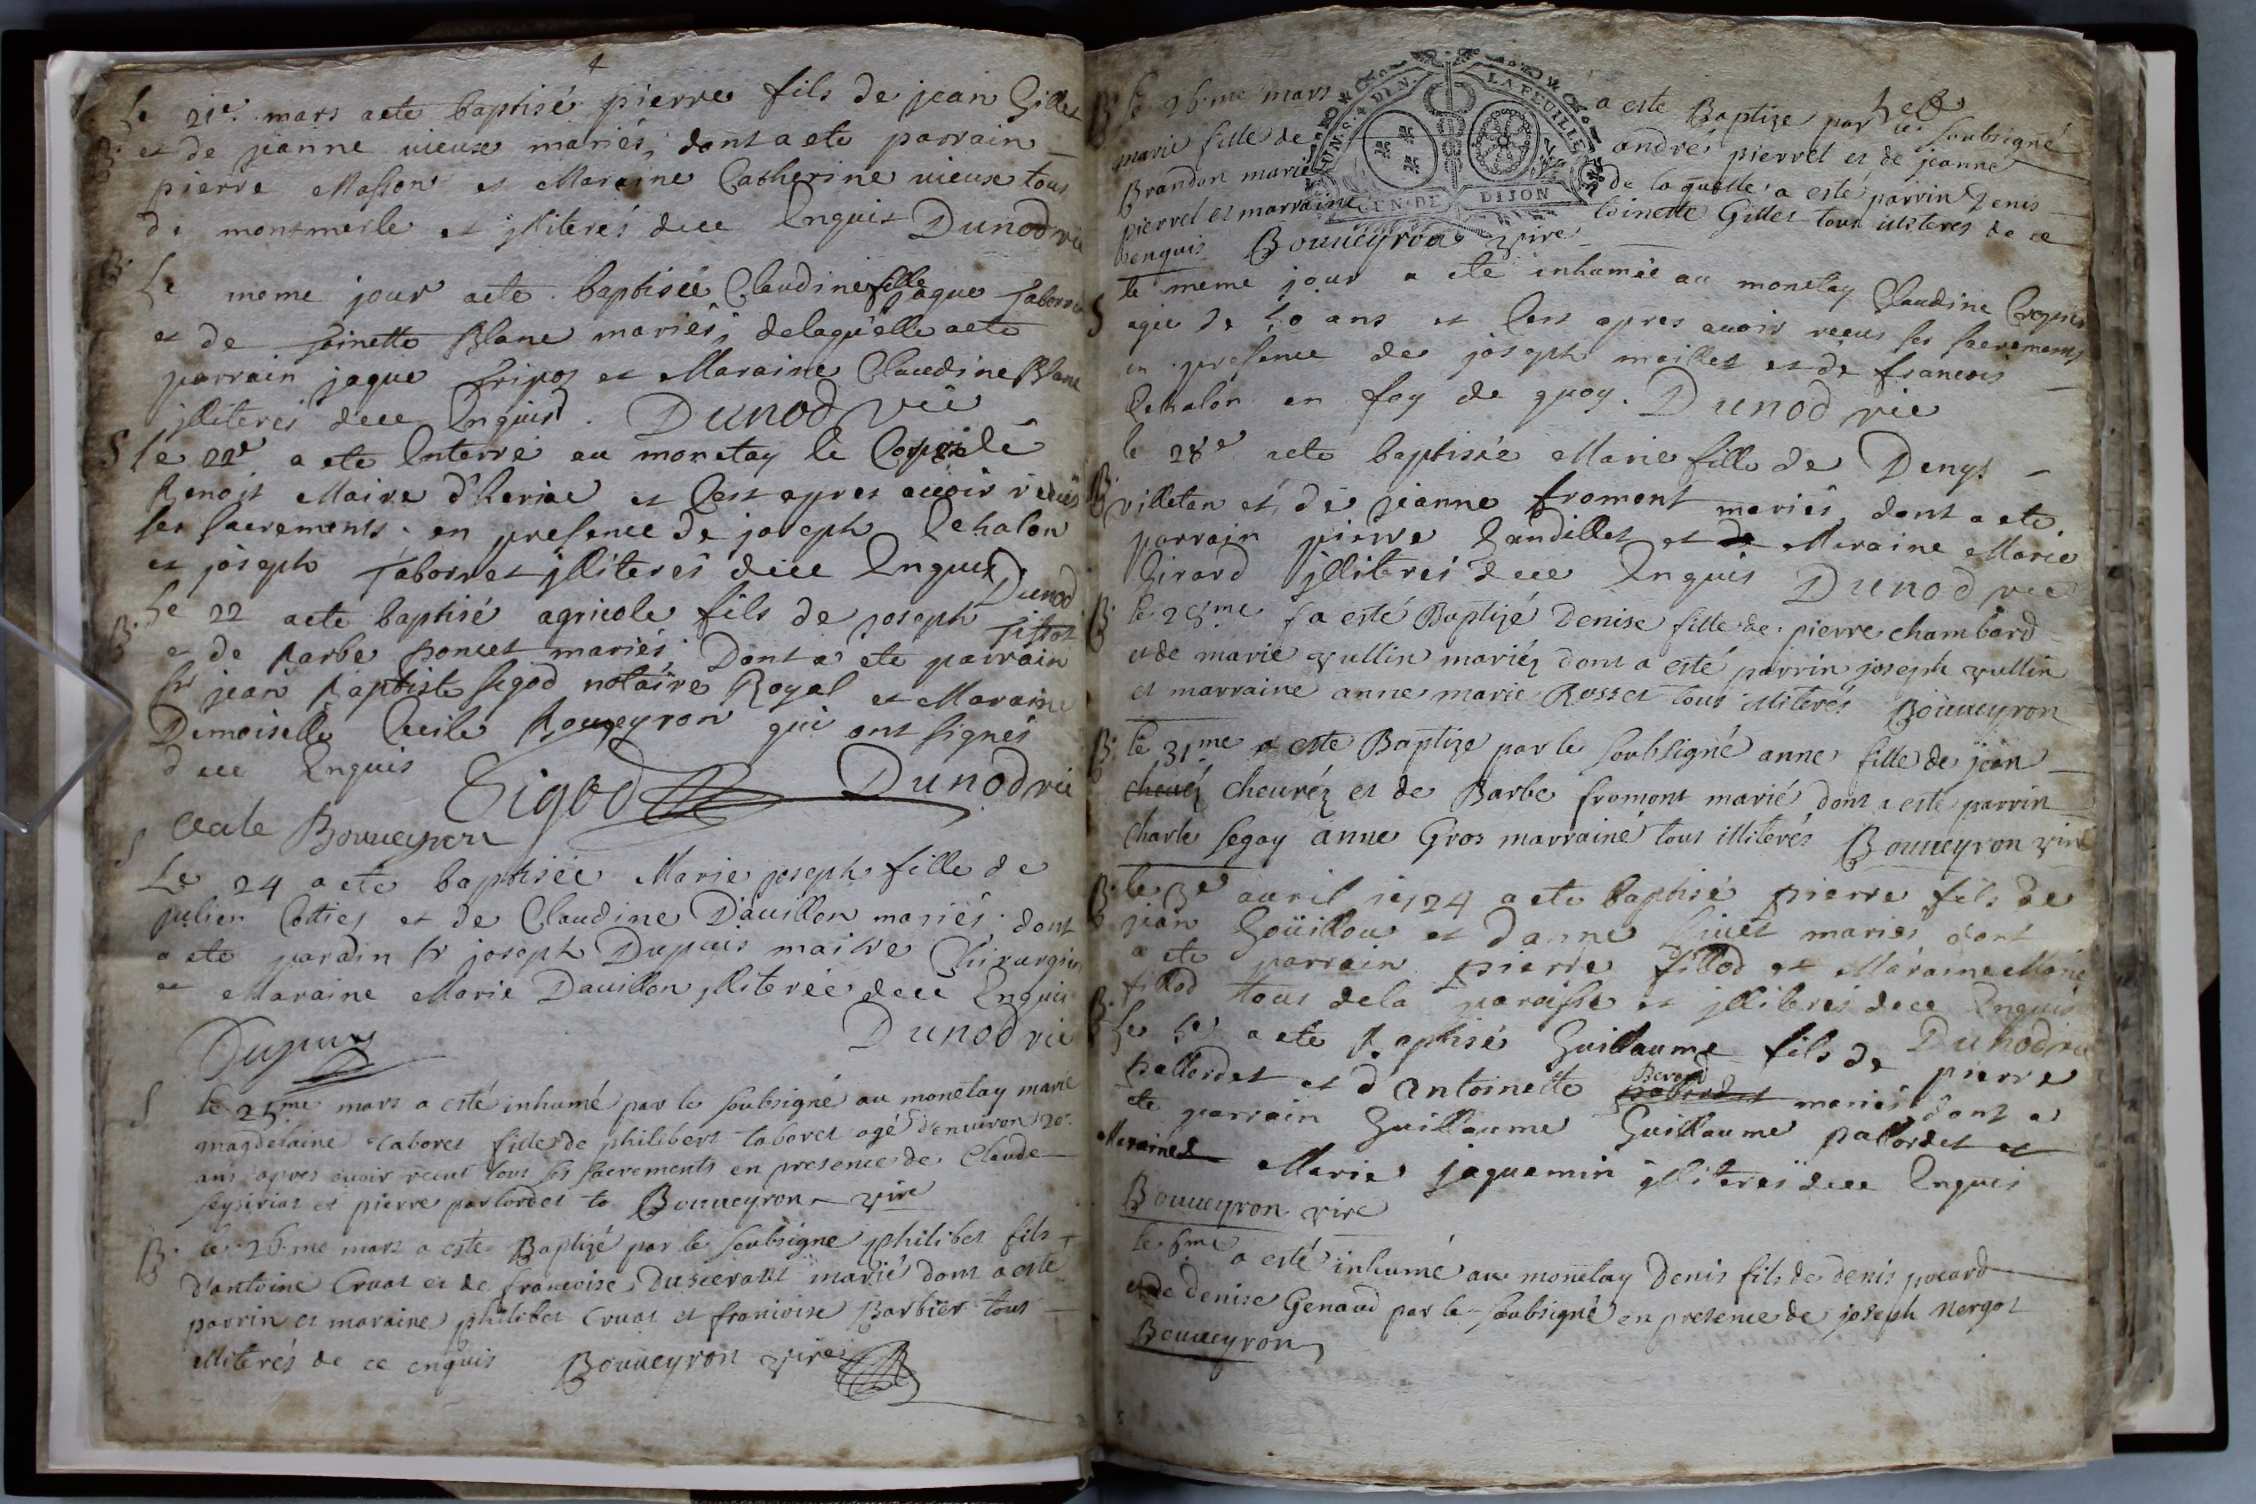 4
Le 21e. mars a ete baptisé pierre fils de jean Gillet
B. et de jeanne vieux mariés, dont a ete parrain
pierre Masson et Maraine Catherine vieux tous
de montmerle et jlliterés dece Enquis Dunod vic
B. Le meme jour a ete baptisée Claudine fille jaque
et de Blanc mariés, delaquelle a ete
parrain jaque et Maraine Claudine Blanc
jlliterés dece Enquis. Dunod vic
S le 22e a ete Enterré au monetay le Corps de
Benoit Maire d'heriac et Cest apres avoir
ses sacrements. en presence de joseph Echalon
et joseph Tabornet jlliterés dece Enquis Dunod
B. Le 22 a ete baptisé agricole fils de joseph
et de Barbe Poncet mariés Dont a ete parrain
Sr jean Baptiste Sigod notaire Royal et Maraine
Demoiselle Cecile Bouveyron qui ont signés
dece Enquis Sigod Dunod vic
Cecile Bouveyron
Le 24 a ete baptisée Marie joseph fille de
julien et de Claudine Davillon mariés. dont
a ete parain Sr joseph Dupuis maitre Chirurgien
et Maraine Marie Davillon jlliterée dece Enquis
Dupuis Dunod vic
S le 25me mars a esté inhumé par le soubsigné au monetay marie
magdelaine taboret fille de philibert taboret agé d'environ 20
ans apres avoir receut tous ses sacrements en presence de Claude
et pierre Bouveyron vire
B. le 26me mars a esté Baptizé par le soubsigne philibet fils
d'antoine Cruat et de francoise marié dont a este
parrin et maraine philibet Cruat et francoise Barbier tous
illiterés de ce enquis Bouveyron vire
B le 26me mars a este Baptize par le soubsigné
marie fille de andré pierret et de jeanne
Brandon marie de laquelle a esté parrin Denis
pierret et marraine toinette Gillet tous illiteres de ce
enquis Bouveyron vire
GEN. DE DIJON
LA FEUILLE
S le meme jour a ete inhumée au monetay Claudine
agée de 50 ans et Cest apres avoir receus ses sacrements
en presence de joseph maillet et de francois
Echalon en foy de quoy. Dunod vic
B. le 28e a ete baptisée Marie fille de Denys
villetan et de jeanne fromont mariés, dont a ete
parrain pierre Gandillet et Maraine Marie
Girard jlliterés dece Enquis Dunod vic
B. a esté Baptizé Denise fille de pierre chambard
et de marie vullin mariéz dont a esté parrin joseph vullin
et marraine anne marie Rosset tous illiterés Bouveyron
B. le 31me a este Baptize par le soubsigné anne fille de jean
cheuréz et de Barbe fromont marié dont a este parrin
charle segay anne Gros marraine tous illiterés Bouveyron vire
B. le 3e avril 1724 a ete baptisé pierre fils de
jean Goüillou et d'anne mariés dont
a ete parrain pierre fillod et Maraine Marie
fillod tous dela paroisse et jlliterés dece Enquis
B. Le 5e a ete Baptisé Guillaume fils de Dunod vic
pallordet et d'Antoinette Berard mariés dont a pierre
ete parrain Guillaume Guillaume pallordet et
Maraine Marie jaquemin jlliterés dece Enquis
Bouveyron vire
le 6me a esté inhumé au monetay Denis fils de denis pocard
et de denise Genaud par le soubsigné en presence de joseph nergot
Bouveyron